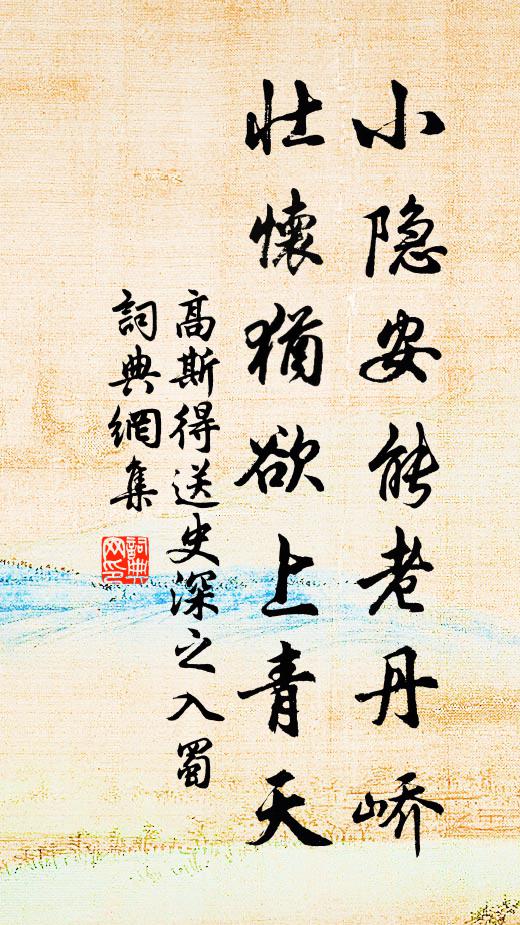 小隐安能老丹峤
壮懷猶欲上青天
高斯得送史深之入蜀
詞典網集
詞典网印